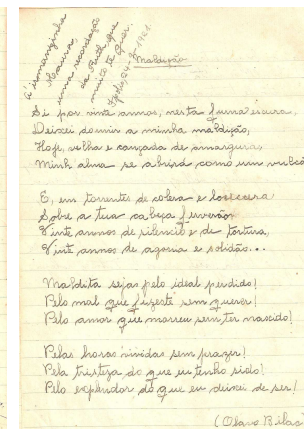 à irmanzinha
Maura,
uma recordação
da Ruth que
muito te quer.
1921.
Maldição
Si por vinte annos, nesta furna escura,
Deixei dormir a minha maldição,
Hoje, velha e cançada de amargura,
Minh alma se abrirá como um vulcão
E, em torrentes de colera e loucura
Sobre a tua cabeça ferverão
Vinte annos de silencio e de tortura,
Vinte annos de agonia e solidão...
Maldita sejas pelo ideal perdido!
Pelo mal que fizeste sem querer!
Pelo amor que morreu sem ter nascido!
Pelas horas vividas sem prazer!
Pela tristeza do que eu tenho sido!
Pelo explendor do que eu deixei de ser!
(Olavo Bilac)